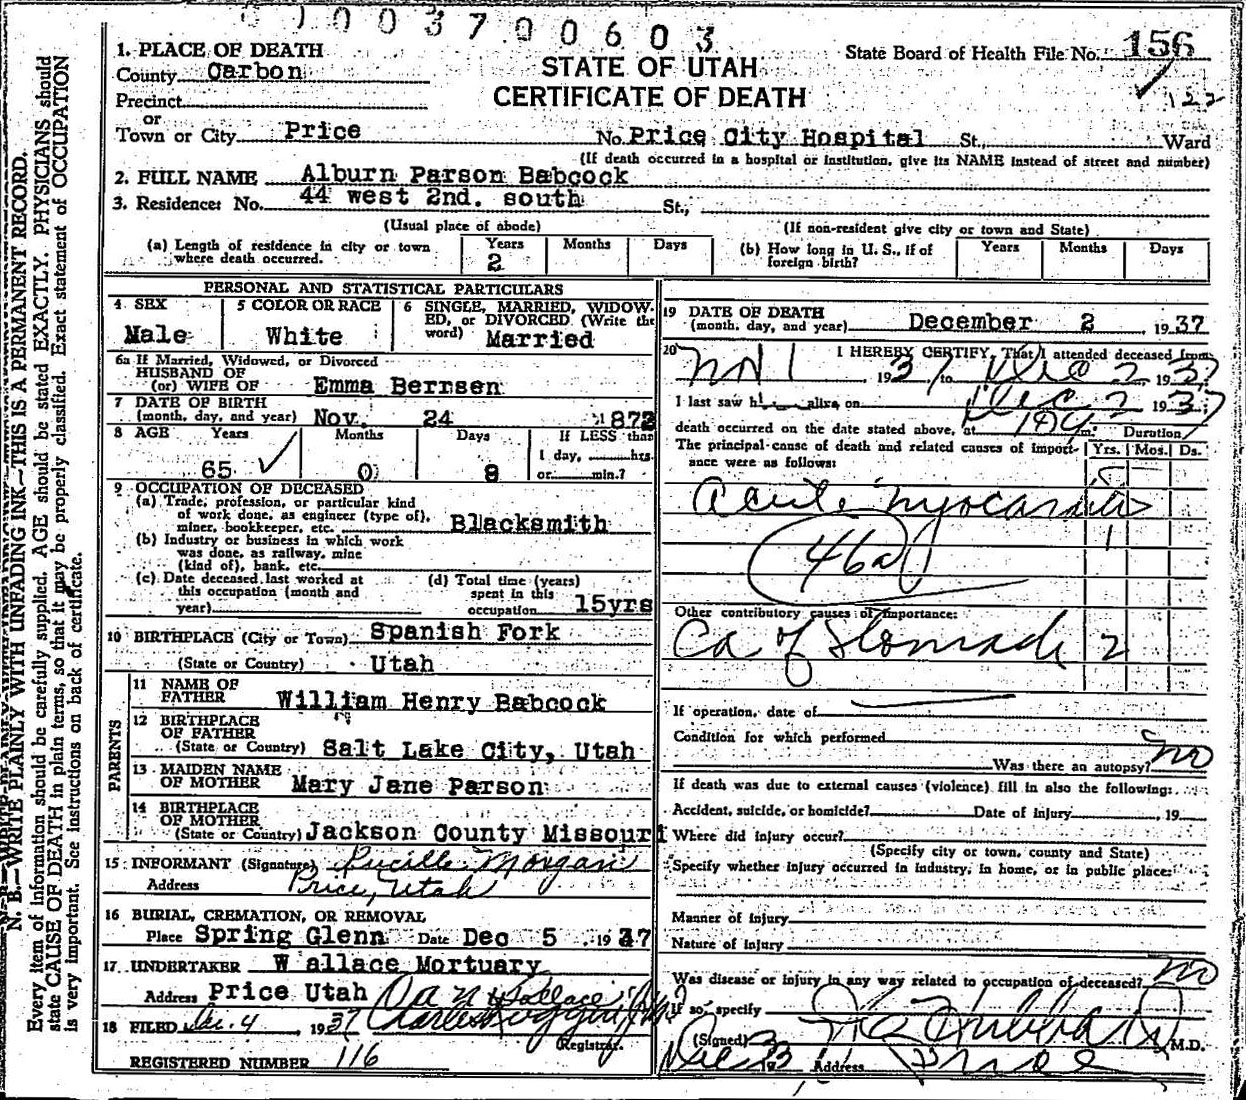 003700603
State Board of Health File No. 156
122
STATE OF UTAH
CERTIFICATE OF DEATH
1. PLACE OF DEATH
County Carbon
Precinct
or
Town or City Price No. Price City Hospital St., Ward
(If death occurred in a hospital or institution, give its NAME instead of street and number)
2. FULL NAME Alburn Parson Babcock
3. Residence: No. 44 west 2nd. south St.,
(Usual place of abode) (If non-resident give city or town and State)
(a) Length of residence in city or town where death occurred. Years 2 Months Days
(b) How long in U. S., if of foreign birth? Years Months Days
PERSONAL AND STATISTICAL PARTICULARS
4 SEX Male
5 COLOR OR RACE White
6 SINGLE, MARRIED, WIDOWED, or DIVORCED (Write the word) Married
6a If Married, Widowed, or Divorced
HUSBAND OF
(or) WIFE OF Emma Bernsen
7 DATE OF BIRTH
(month, day, and year) Nov. 24 1872
8 AGE Years 65 Months 0 Days 8 If LESS than 1 day, hrs. or min.?
9 OCCUPATION OF DECEASED
(a) Trade, profession, or particular kind of work done, as engineer (type of), miner, bookkeeper, etc. Blacksmith
(b) Industry or business in which work was done, as railway, mine (kind of), bank, etc.
(c) Date deceased last worked at this occupation (month and year)
(d) Total time (years) spent in this occupation 15yrs
10 BIRTHPLACE (City or Town) Spanish Fork
(State or Country) Utah
PARENTS
11 NAME OF FATHER William Henry Babcock
12 BIRTHPLACE OF FATHER
(State or Country) Salt Lake City, Utah
13 MAIDEN NAME OF MOTHER Mary Jane Parson
14 BIRTHPLACE OF MOTHER
(State or Country) Jackson County Missouri
15 INFORMANT (Signature) Lucille Morgan
Address Price, Utah
16 BURIAL, CREMATION, OR REMOVAL
Place Spring Glenn Date Dec 5 1937
17 UNDERTAKER Wallace Mortuary
Address Price Utah
18 FILED Dec. 4 1937
Registrar
REGISTERED NUMBER 116
19 DATE OF DEATH
(month, day, and year) December 2 1937
20 I HEREBY CERTIFY, That I attended deceased from
Nov 1 1937 to Dec 2 1937
I last saw h alive on Dec 2 1937
death occurred on the date stated above, at m. Duration
The principal cause of death and related causes of importance were as follows: Yrs. Mos. Ds.
Acute myocarditis
46a
Other contributory causes of importance:
Ca of Stomach 2
If operation, date of
Condition for which performed
Was there an autopsy? no
If death was due to external causes (violence) fill in also the following:
Accident, suicide, or homicide? Date of injury , 19
Where did injury occur?
(Specify city or town, county and State)
Specify whether injury occurred in industry, in home, or in public place:
Manner of Injury
Nature of Injury
Was disease or injury in any way related to occupation of deceased? no
If so, specify
(Signed) M.D.
Dec 3 19 Address Price
N. B.—WRITE PLAINLY WITH UNFADING INK—THIS IS A PERMANENT RECORD.
Every item of information should be carefully supplied. AGE should be stated EXACTLY. PHYSICIANS should
state CAUSE OF DEATH in plain terms, so that it may be properly classified. Exact statement of OCCUPATION
is very important. See instructions on back of certificate.